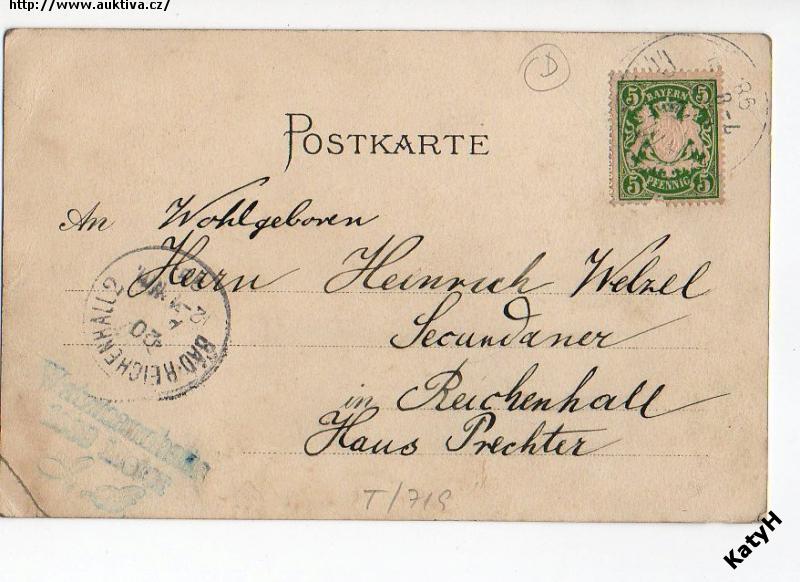 http://www.auktiva.cz/
D
BAYERN
5 5
5 5
PFENNIG
POSTKARTE
An Wohlgeboren
Herrn Heinrich Welzel
Secundaner
in Reichenhall
Haus Prechter
BAD-REICHENHALL 2
T/719
KatyH